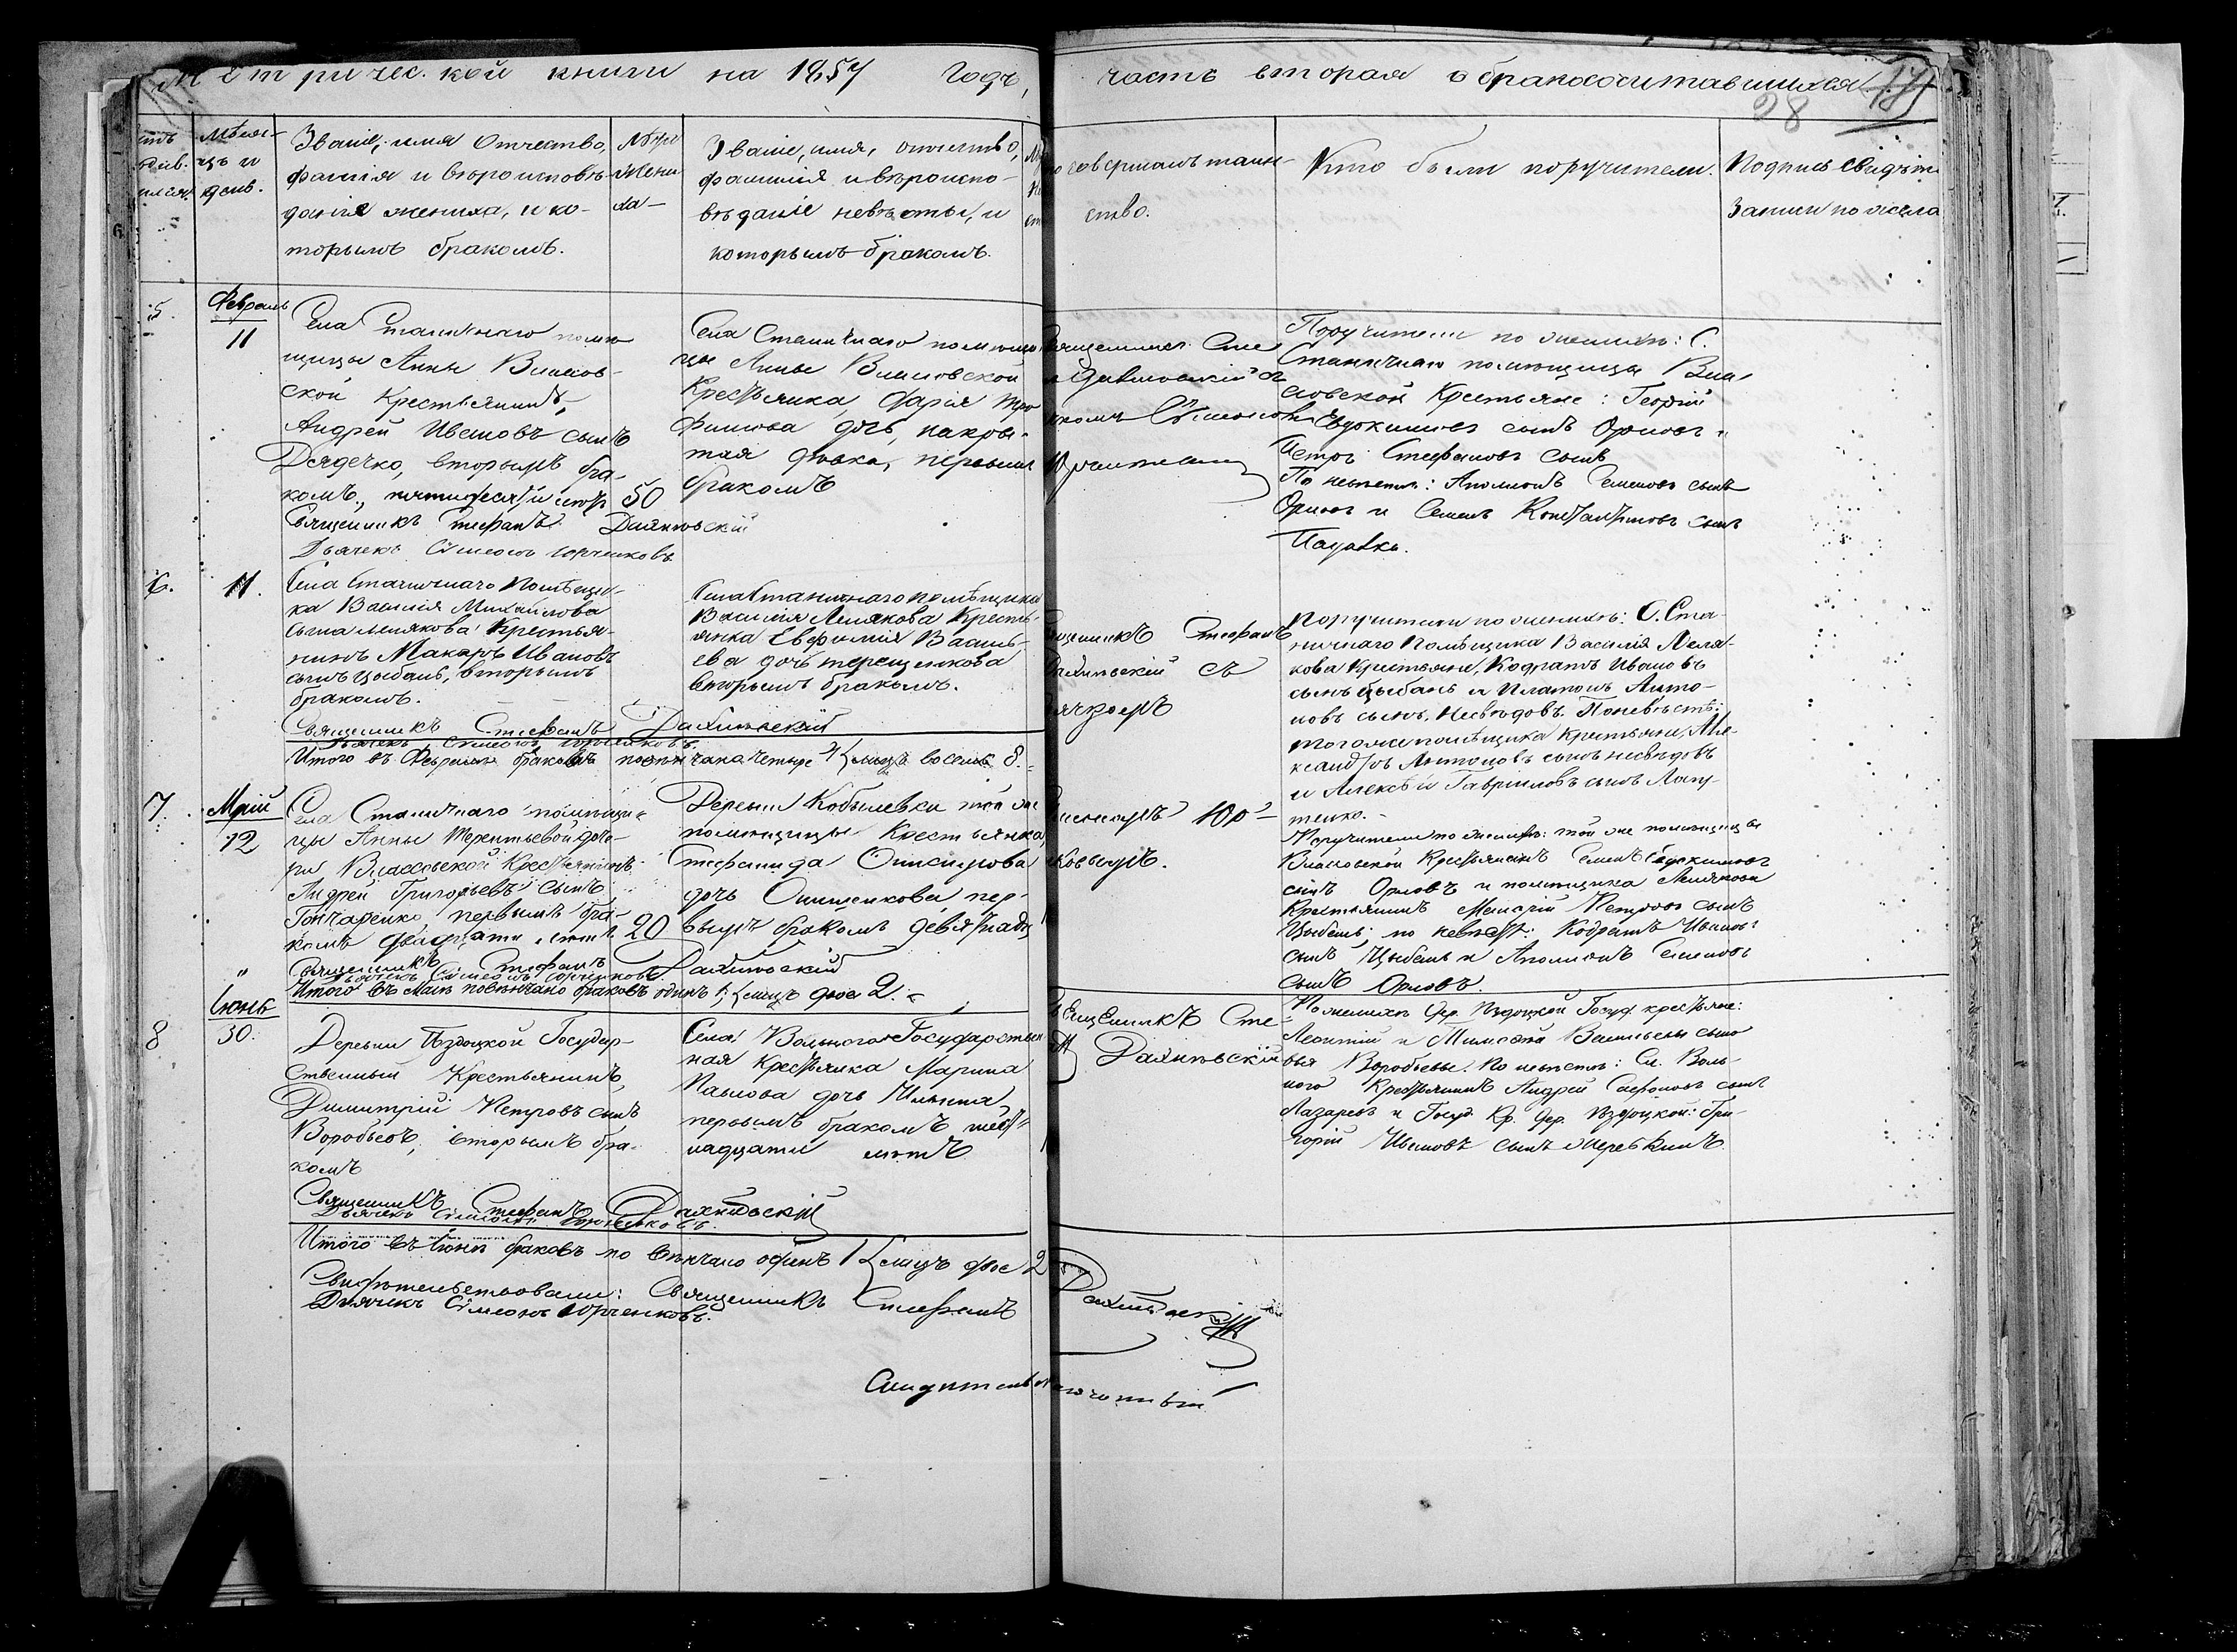 Метрической книги на 1857 Годъ,
часть вторая о бракосочитавшихся
28
Мѣся-
цъ и
день.
Званіе, имя Отчество,
фамилія и вѣроисповѣ-
даніе жениха, и ко-
торымъ бракомъ.
Лѣта
Жени-
ха
Званіе, имя, отчество,
фамилія и вѣроиспо-
вѣданіе невѣсты, и
которымъ бракомъ.
совершалъ таин-
ство.
Кто были поручители.
Подпись свидѣт
Записи по
5.
Февраль
11
Села Станичнаго помѣ-
щицы Анны Власов-
ской Крестьянинъ,
Андрей Ивановъ сынъ
Дядечко, вторымъ бра-
комъ, пятидесяти лѣтъ 50
Священникъ Стефанъ Дахнѣвскій
Дьячекъ Сѵмеонъ Юрченковъ
Села Станичнаго помѣщи
цы Анны Власовской
Крестьянка, Дарія Тро
фимова дочь, покры-
тая девка, первымъ
бракомъ
Священникъ Сте
Сѵмеоно
Поручители по женихѣ: С.
Станичнаго помѣщицы Вла
совской Крестьяне: Георгій
Евдокимовъ сынъ Орловъ и
Петръ Стефановъ сынъ
По невѣсте: Аполлонъ Семеновъ сынъ
Орловъ и Семенъ Константиновъ сынъ
6.
11.
Села Станичнаго Помѣщи-
ка Василія Михайлова
сына Мелякова Крестья-
нинъ Макаръ Ивановъ
сынъ Цыбань, вторымъ
бракомъ.
Священникъ Стефанъ Дахнѣвскій
Дьячекъ Сѵмеонъ Юрченковъ.
Села Станичнаго помѣщика
Василія Мелякова Кресть-
янка Евфимія Василь-
ева дочь Терещенкова
вторымъ бракомъ.
щенникъ Стефанъ
Дахнѣвскій съ
Дьячкомъ
Поручители по женихѣ: С. Ста-
ничнаго Помѣщика Василія Меля-
кова Крестьяне, Кодратъ Ивановъ
сынъ Цыбань и Платонъ Анто-
новъ сынъ Несвѣдовъ. По невѣстѣ:
того же помѣщика Крестьяне, Але-
ксандръ Антоновъ сынъ Несвѣдовъ
и Алексѣй Гавріиловъ сынъ Лагу-
тенко.
Итого въ Февралѣ браковъ повѣнчано четыре 4 лицъ восемь 8.
7.
Май
12
Села Станичнаго помѣщи-
цы Анны Терентьевой доче-
ри Власовской Крестьянинъ
Андрей Григорьевъ сынъ
Гончаренко, первымъ бра-
комъ двадцати лѣтъ. 20
Священникъ Стефанъ Дахнѣвскій
Дьячекъ Сѵмеонъ Юрченковъ.
Деревни Кобылевки той же
помѣщицы Крестьянка,
Стефанида Онисимова
дочь Онищенкова пер-
вымъ бракомъ девятнадц
Сѵмеономъ Юр-
ковымъ.
Поручители по женихѣ: той же помѣщицы
Власовской Крестьянинъ Семенъ Евдокимовъ
сынъ Орловъ и помѣщика Мелякова
Крестьянинъ Петровъ сынъ
Цыбань; по невѣстѣ: Кодратъ Ивановъ
сынъ Цыбань и Аполлонъ Семеновъ
сынъ Орловъ.
Итого въ Маѣ повѣнчано браковъ одинъ 1; лицъ двое 2.
8
Іюнь
30.
Деревни Ѣздоцкой Государ-
ственный Крестьянинъ,
Димитрій Петровъ сынъ
Воробьевъ, вторымъ бра-
комъ
Священникъ Стефанъ Дахнѣвскій
Дьячекъ Сѵмеонъ Юрченковъ.
Села Вольнаго Государствен
ная Крестьянка Марина
Павлова дочь Ильина
первымъ бракомъ шест-
надцати лѣтъ
Священникъ Сте-
Дахнѣвскій
По женихѣ Дер. Ѣздоцкой Госуд. крестьяне:
Леонтій и Тимофей Васильевы сыно
вья Воробьевы. По невѣстѣ: Сл. Воль-
ного Крестьянинъ Андрей Сафоновъ сынъ
Лазаревъ и Госуд. Кр. Дер. Ѣздоцкой: Гри-
горій Ивановъ сынъ Жеребкинъ.
Итого въ Іюнѣ браковъ повѣнчано одинъ 1 лицъ двое 2
Свидѣтельствовали: Священникъ Стефанъ Дахнѣвскій
Дьячекъ Сѵмеонъ Юрченковъ.